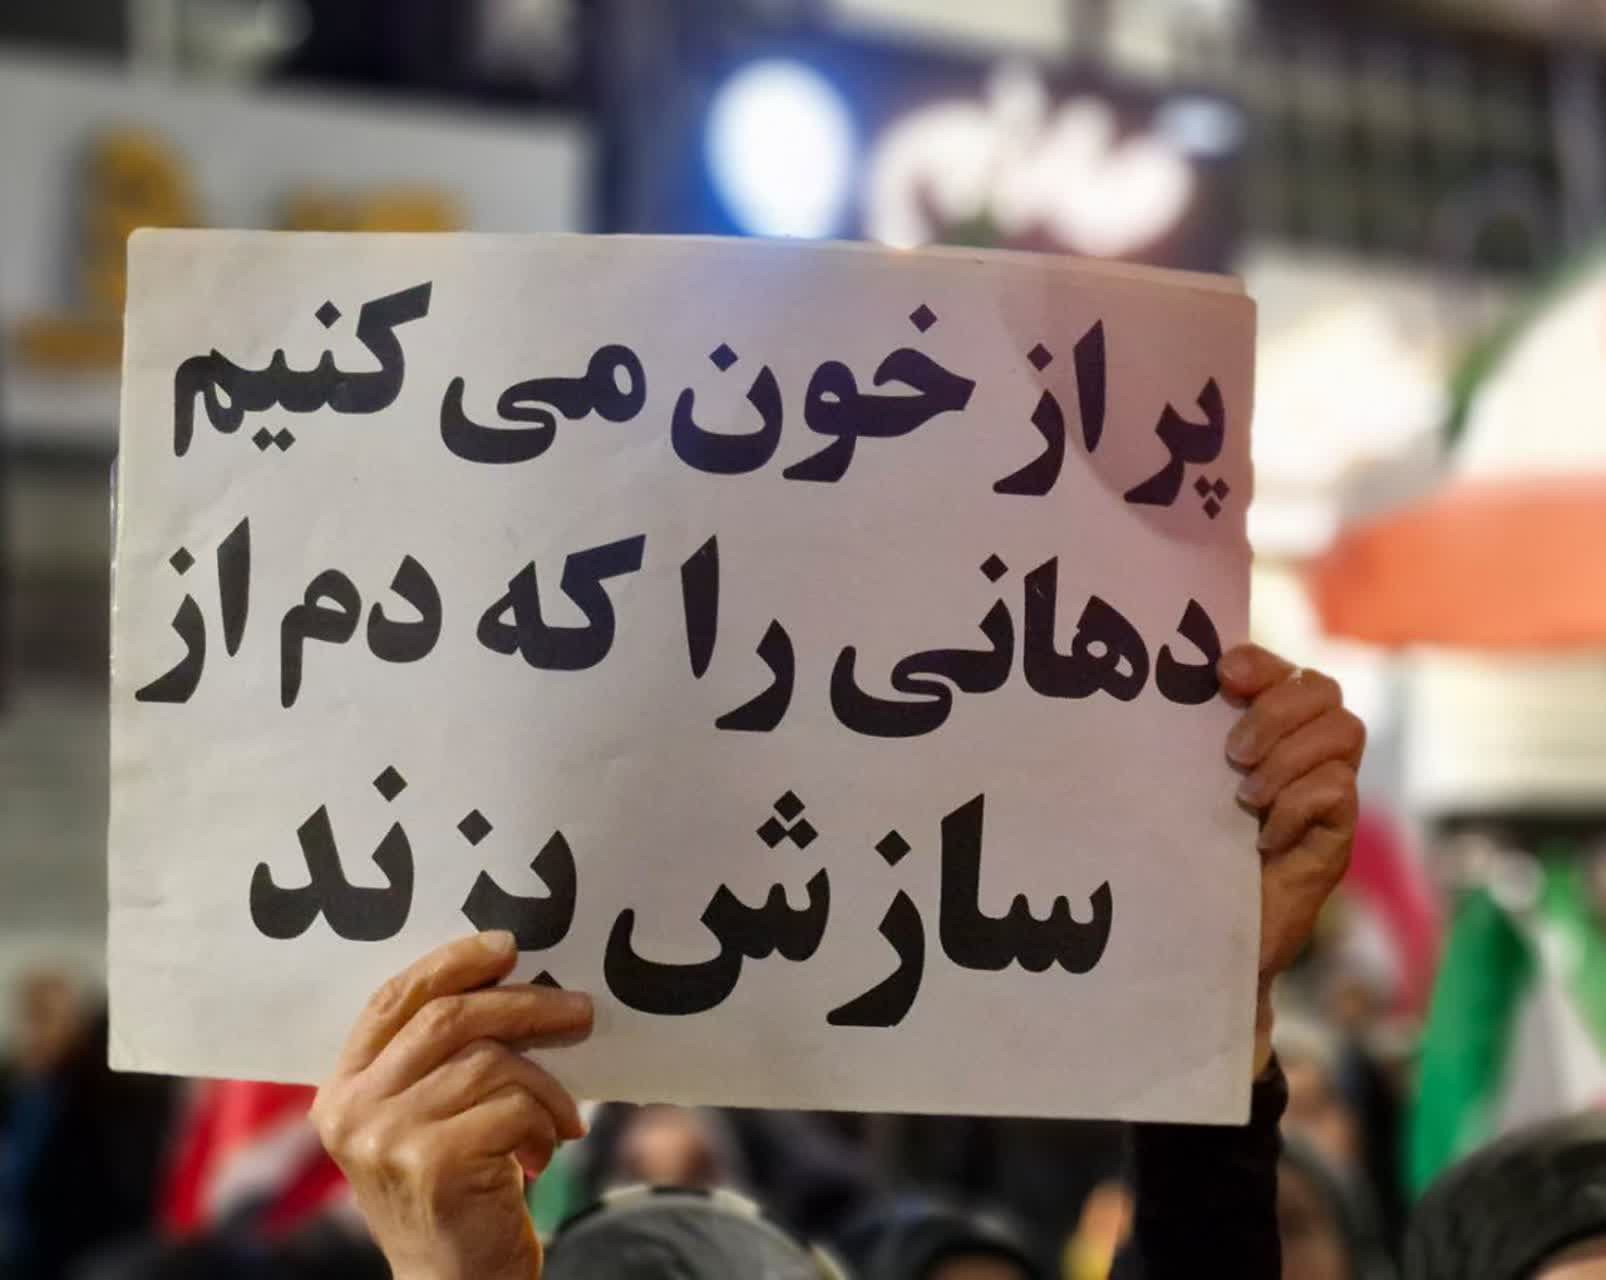 پر از خون می کنیم
دهانی را که دم از
سازش بزند